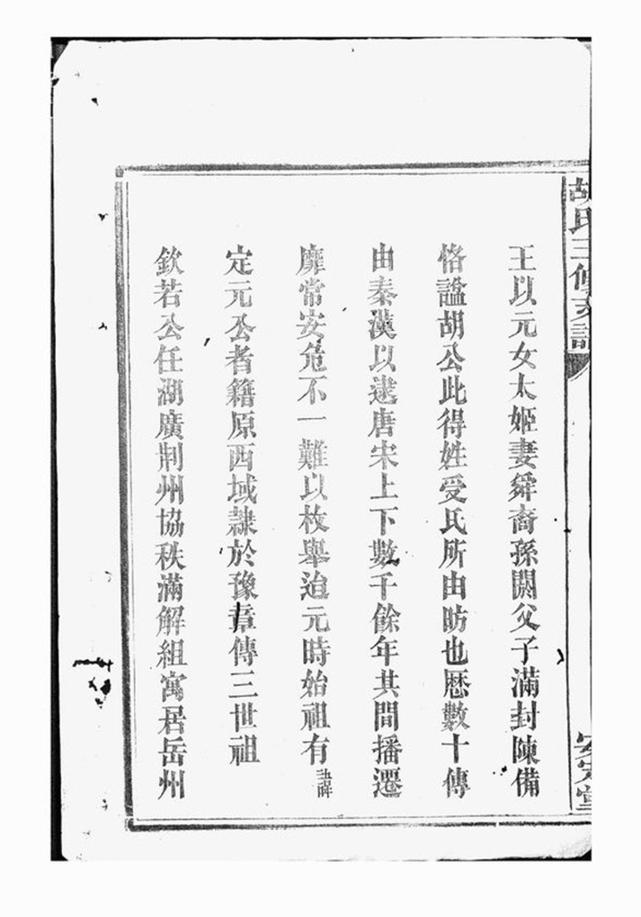 胡氏三修支譜
安定堂
王以元女太姬妻舜裔孫閼父子滿封陳備
恪謚胡公此得姓受氏所由昉也歷數十傳
由秦漢以逮唐宋上下數千餘年其間播遷
靡常安危不一難以枚舉迨元時始祖有諱
定元公者籍原西域隷於豫章傳三世祖
欽若公任湖廣荆州協秩滿解組寓居岳州